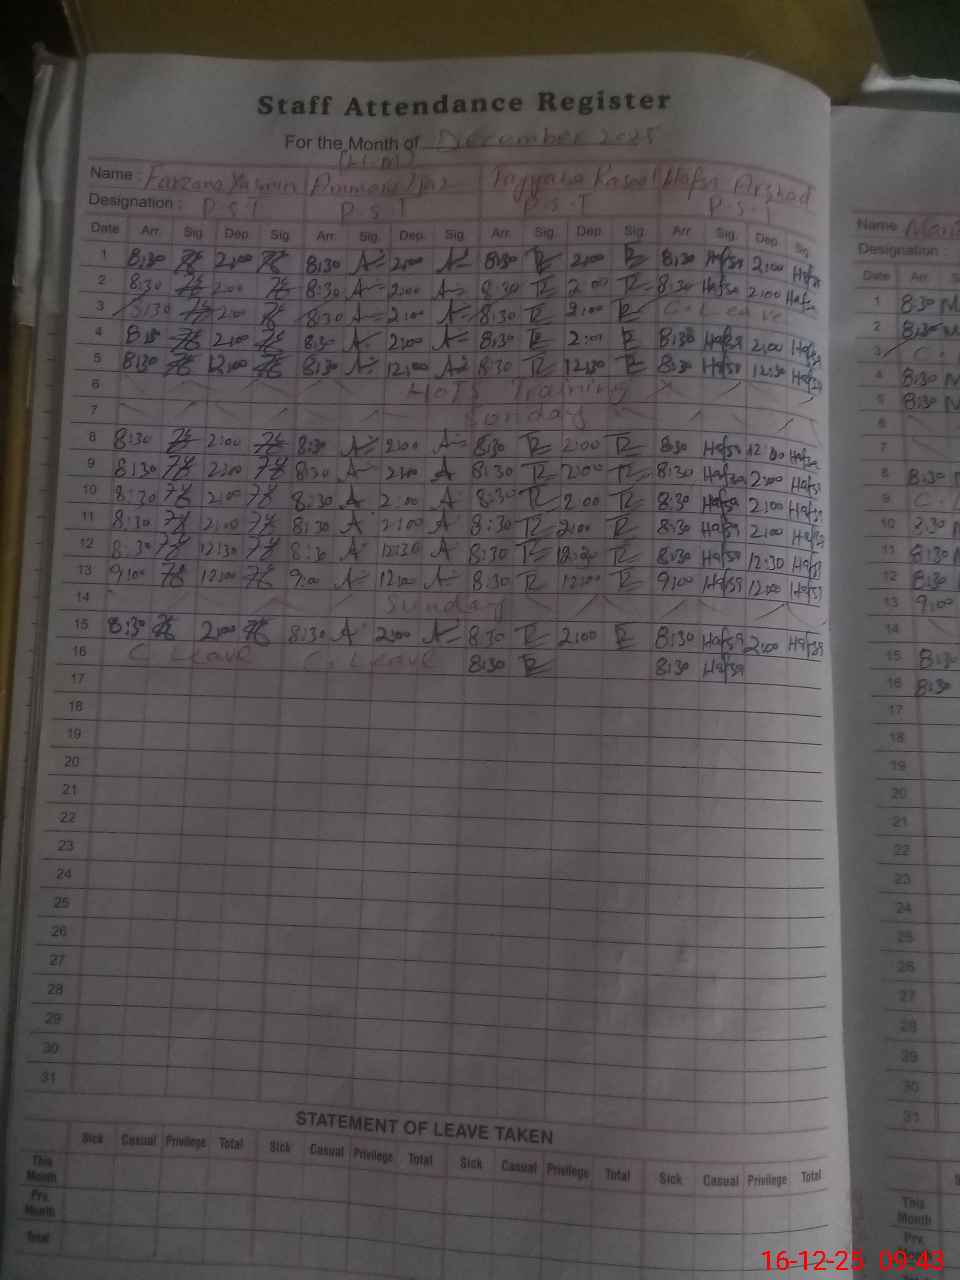 Staff Attendance Register
For the Month of December 2025
Name : Farzana Yasmin Tayyaba Hafsa Arshad
Designation : P.S.T P.S.T P.S.T P.S.T
Date Arr. Sig. Dep. Sig. Arr. Sig. Dep. Sig. Arr. Sig. Dep. Sig. Arr. Sig. Dep. Sig.
1 8:30 2:00 8:30 A 2:00 A 8:30 TR 2:00 TR 8:30 Hafsa 2:00 Hafsa
2 8:30 2:00 8:30 A 2:00 A 8:30 TR 2:00 TR 8:30 Hafsa 2:00 Hafsa
3 8:30 2:00 8:30 A 2:00 A 8:30 TR TR C. Leave
4 2:00 8:30 A 2:00 A 8:30 TR 2:00 TR 8:30 Hafsa 2:00 Hafsa
5 8:30 12:00 8:30 A 12:00 A 8:30 TR 12:30 TR 8:30 Hafsa 12:30 Hafsa
6 Training
7 Sunday
8 8:30 2:00 8:30 A 2:00 A 8:30 TR 2:00 TR 8:30 Hafsa Hafsa
9 8:30 2:00 8:30 A 2:00 A 8:30 TR 2:00 TR 8:30 Hafsa 2:00 Hafsa
10 8:30 2:00 8:30 A 2:00 A 8:30 TR 2:00 TR 8:30 Hafsa 2:00 Hafsa
11 8:30 2:00 8:30 A 2:00 A 8:30 TR 2:00 TR 8:30 Hafsa 2:00 Hafsa
12 8:30 12:30 8:30 A 12:30 A 8:30 TR 12:30 TR 8:30 Hafsa 12:30 Hafsa
13 9:00 12:00 9:00 A 12:00 A 8:30 TR 12:00 TR 9:00 Hafsa 12:00 Hafsa
14 Sunday
15 8:30 2:00 8:30 A 2:00 A 8:30 TR 2:00 TR 8:30 Hafsa 2:00 Hafsa
16 C. Leave C. Leave 8:30 TR 8:30 Hafsa
17
18
19
20
21
22
23
24
25
26
27
28
29
30
31
STATEMENT OF LEAVE TAKEN
Sick Casual Privilege Total Sick Casual Privilege Total Sick Casual Privilege Total Sick Casual Privilege Total
This Month
Prv. Month
Total
Name
Designation
Date Arr.
1 8:30
2 8:30
3 C.
4 8:30
5 8:30
6
7
8 8:30
9 C.
10 8:30
11 8:30
12 8:30
13 9:00
14
15 8:30
16 8:30
17
18
19
20
21
22
23
24
25
26
27
28
29
30
31
This Month
Prv. Month
16-12-25 09:43